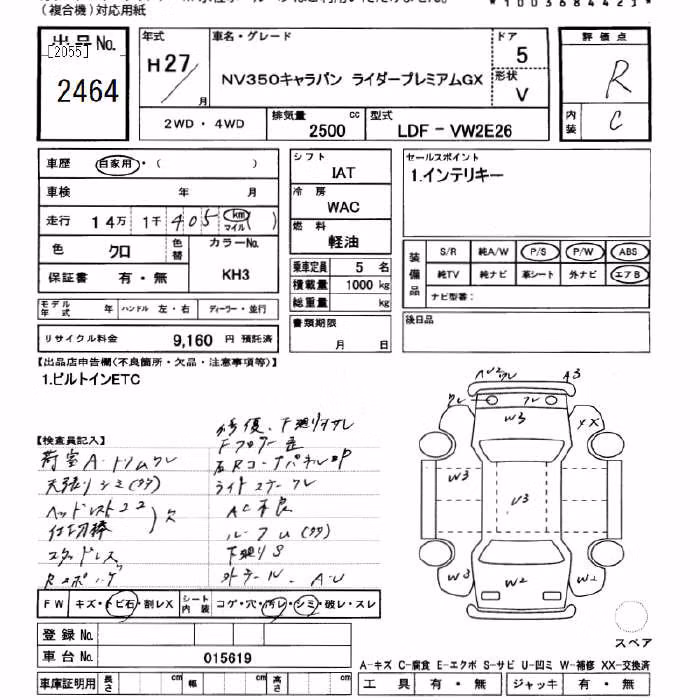 (複合機)対応用紙
*1003684423*
出品No.
[2055]
2464
年式
H27/
月
車名・グレード
NV350キャラバン ライダープレミアムGX
ドア
5
形状
V
評価点
R
内装
C
2WD・4WD
排気量 2500 cc
型式 LDF-VW2E26
車歴 自家用・( )
車検 年 月
走行 14万 1千 405 (km マイル)
色 クロ 色替
カラーNo. KH3
保証書 有・無
モデル年式 年 ハンドル 左・右 ディーラー・並行
リサイクル料金 9,160 円 預託済
シフト
IAT
冷房
WAC
燃料
軽油
乗車定員 5 名
積載量 1000 kg
総重量 kg
書類期限
月 日
セールスポイント
1.インテリキー
装備品
S/R 純A/W P/S P/W ABS
純TV 純ナビ 革シート 外ナビ エアB
ナビ型番:
後日品
【出品店申告欄(不良箇所・欠品・注意事項等)】
1.ビルトインETC
【検査員記入】
修復、下廻りサビ
荷室A・トリムワレ
天張りシミ(クワ)
ライトステーワレ
ヘッドレスト22
仕切棒
欠
AC不良
ルーフU(クワ)
スタッドレス
下廻りS
外テール、A・U
FW キズ・トビ石・割レX シート内装 コゲ・穴・汚レ・シミ・破レ・スレ
登録No.
車台No. 015619
車庫証明用 長さ cm 幅 cm 高さ cm
A3
ワレ
ワレ
W3
XX
W3
U3
W3
W3
W2
W2
スペア
A-キズ C-腐食 E-エクボ S-サビ U-凹ミ W-補修 XX-交換済
工具 有・無 ジャッキ 有・無